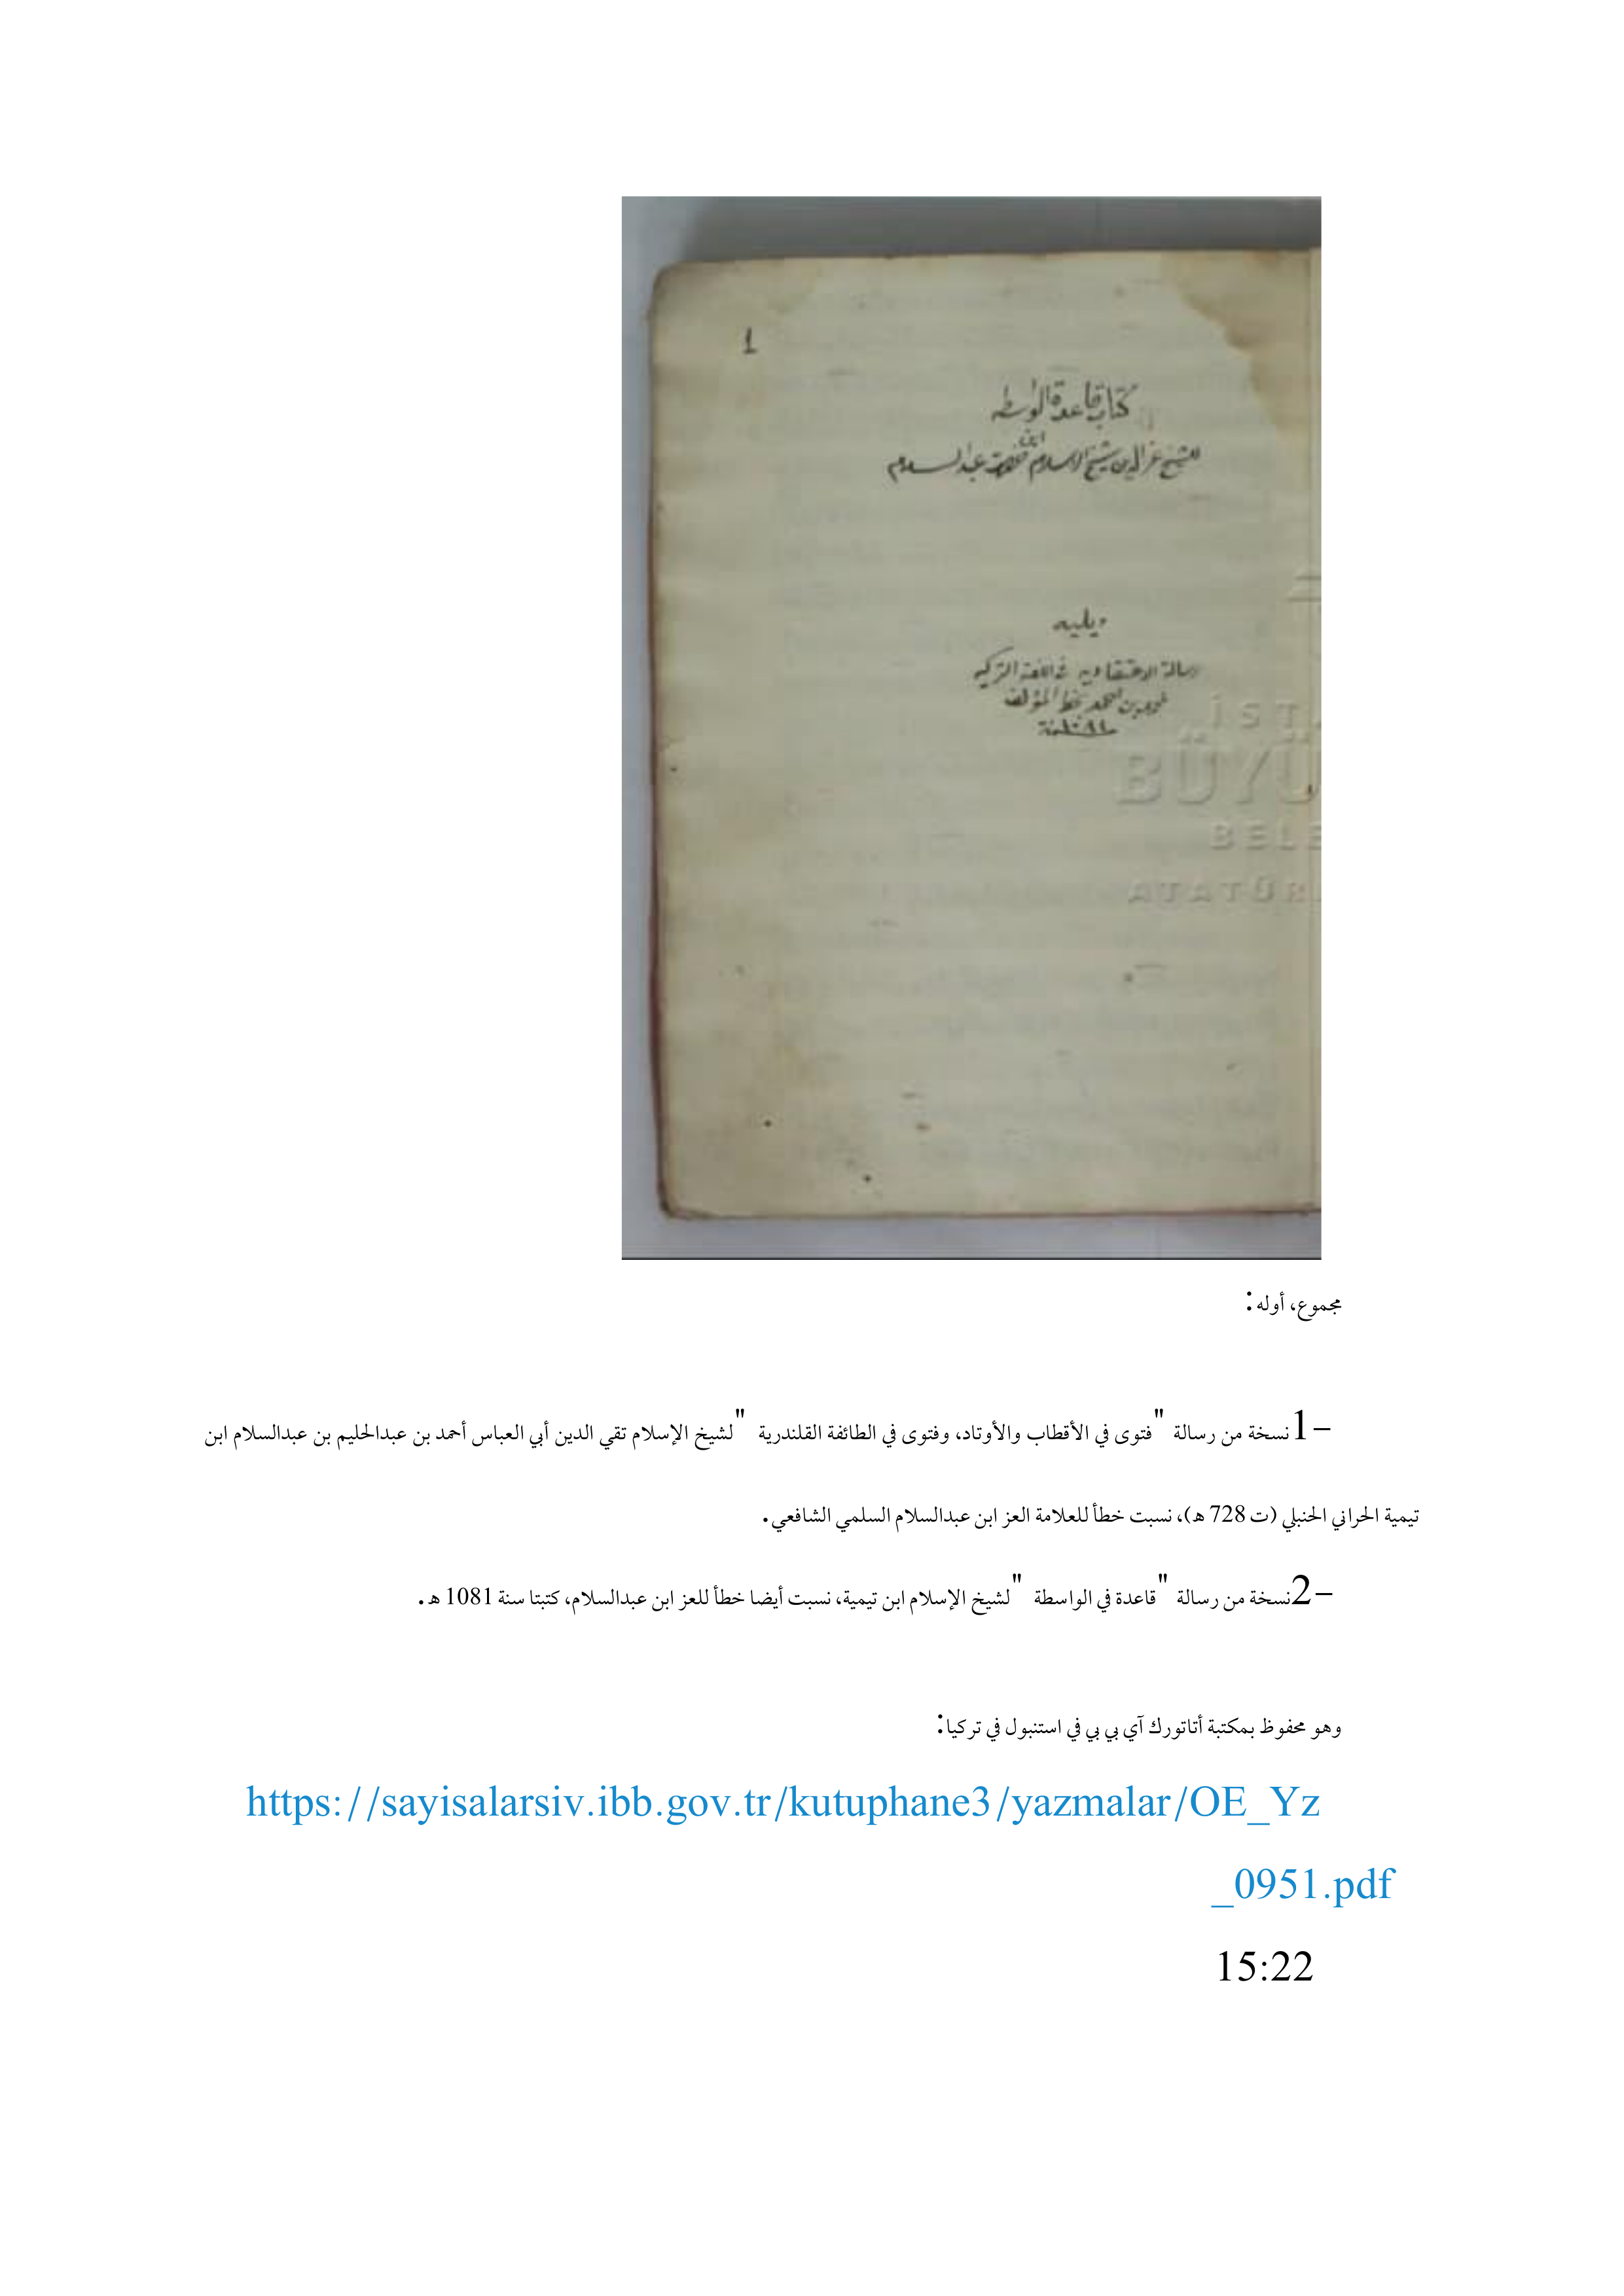 1
كتاب قاعدة الواسطه
للشيخ عز الدين شيخ الاسلام ابن عبد السلام
ويليه
رسالة الاعتقاديه في اللغة التركيه
بن محمد بخط المؤلف
İST
BÜYÜ
BELE
ATATÜR
مجموع، أوله:
1- نسخة من رسالة "فتوى في الأقطاب والأوتاد، وفتوى في الطائفة القلندرية" لشيخ الإسلام تقي الدين أبي العباس أحمد بن عبدالحليم بن عبدالسلام ابن
تيمية الحراني الحنبلي (ت 728 هـ)، نسبت خطأ للعلامة العز ابن عبدالسلام السلمي الشافعي.
2- نسخة من رسالة "قاعدة في الواسطة" لشيخ الإسلام ابن تيمية، نسبت أيضا خطأ للعز ابن عبدالسلام، كتبتا سنة 1081 هـ.
وهو محفوظ بمكتبة أتاتورك آي بي بي في استنبول في تركيا:
https://sayisalarsiv.ibb.gov.tr/kutuphane3/yazmalar/OE_Yz
_0951.pdf
15:22